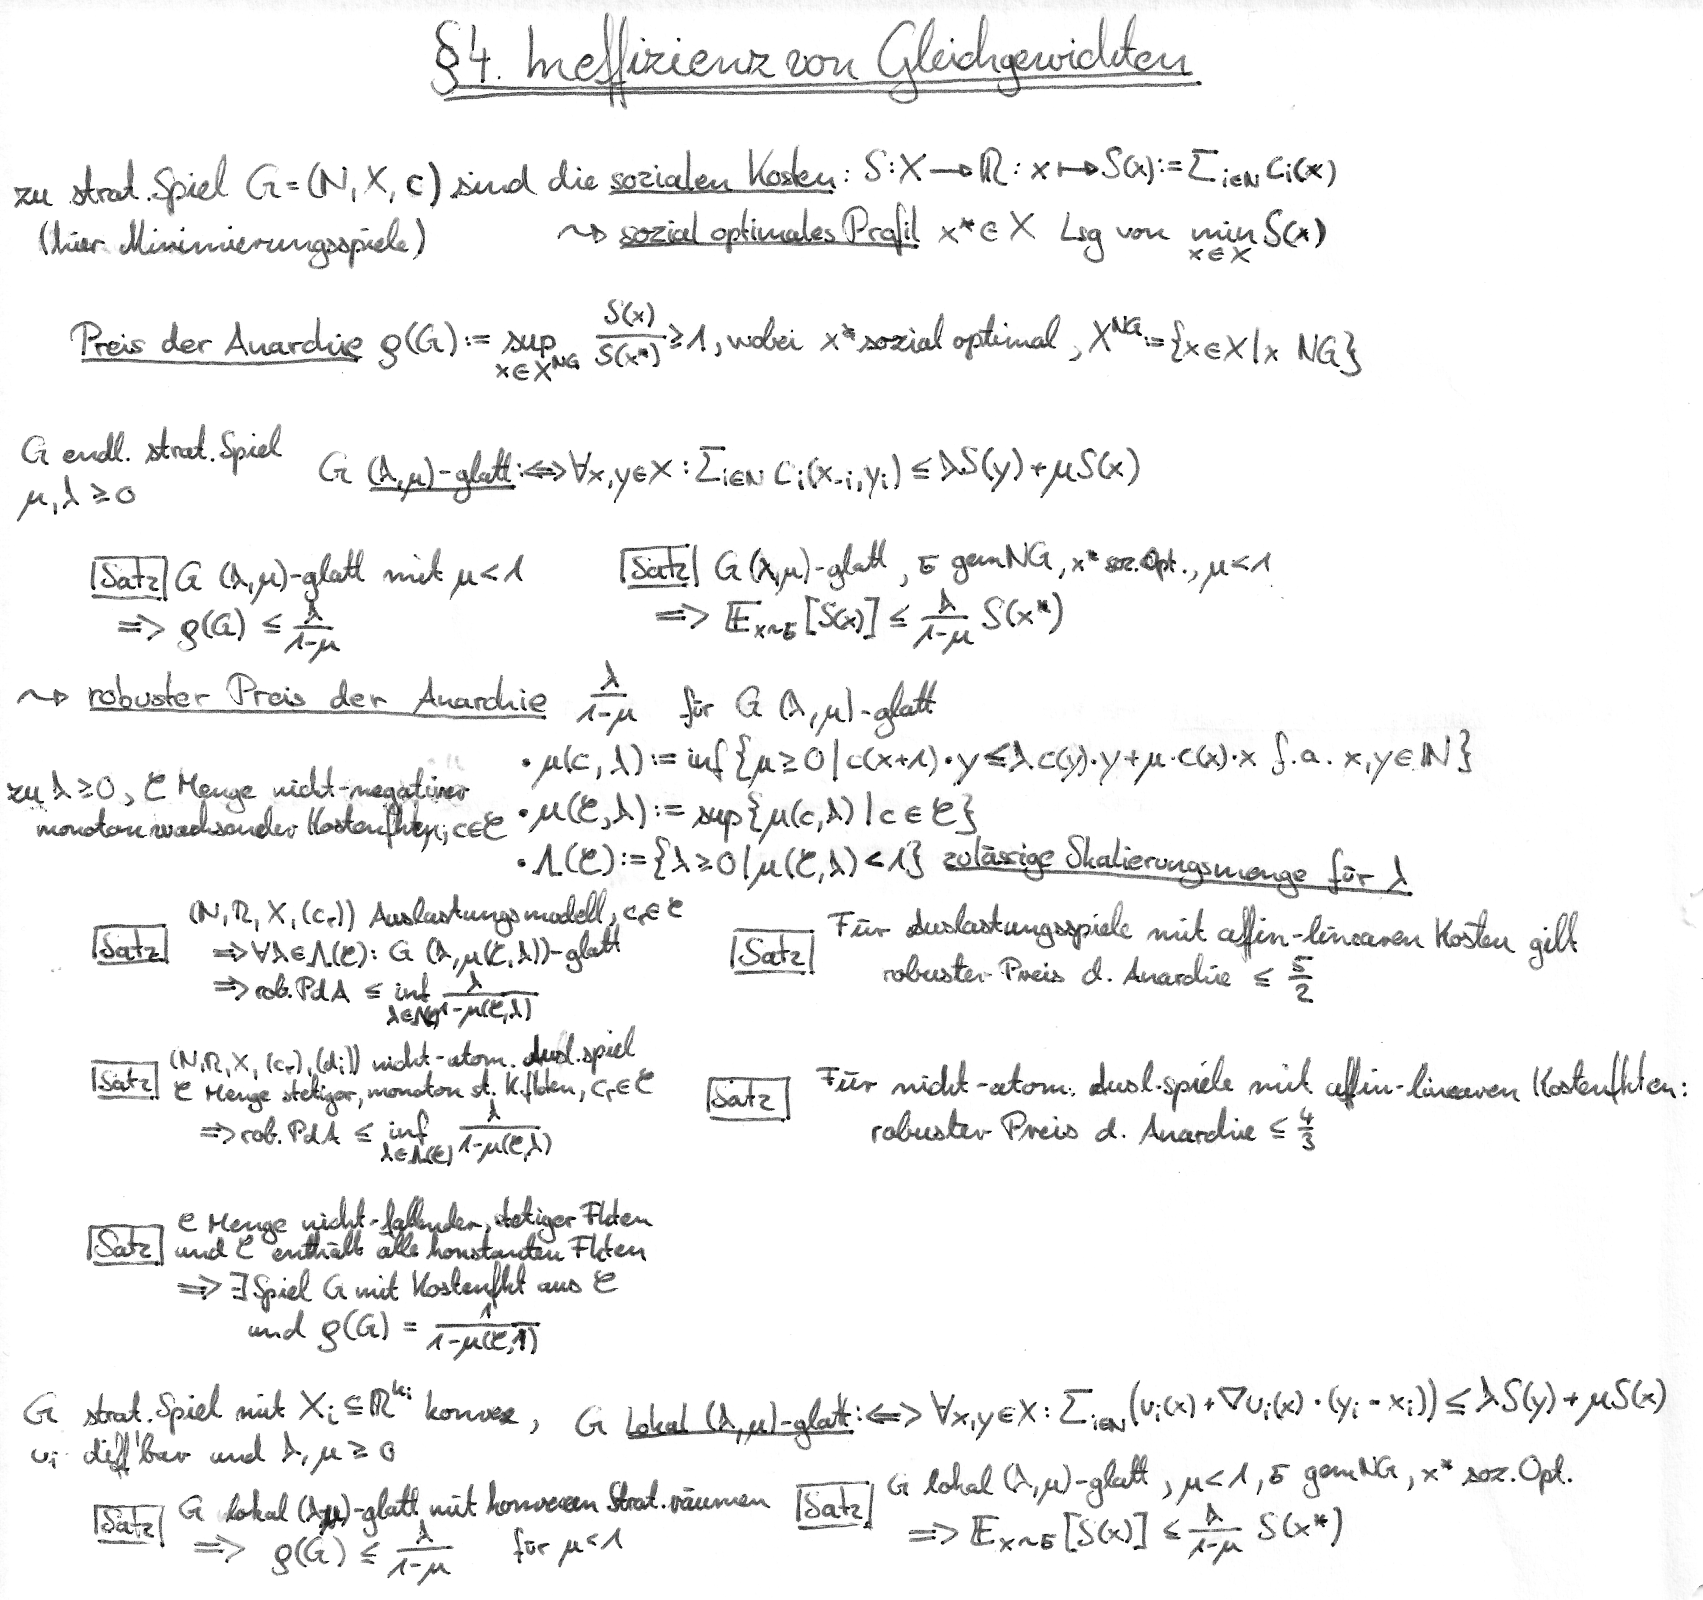 §4. Ineffizienz von Gleichgewichten
zu strat. Spiel G=(N,X,c) sind die sozialen Kosten: S:X→ℝ: x↦S(x):=Σ_{i∈N} c_i(x)
(hier Minimierungsspiele) ⇝ sozial optimales Profil x*∈X Lsg von min_{x∈X} S(x)
Preis der Anarchie ρ(G):= sup_{x∈X^{NG}} S(x)/S(x*) ≥1, wobei x* sozial optimal, X^{NG}:={x∈X|x NG}
G endl. strat. Spiel
μ,λ≥0
G (λ,μ)-glatt :⇔ ∀x,y∈X: Σ_{i∈N} c_i(x_{-i},y_i) ≤ λS(y)+μS(x)
Satz G (λ,μ)-glatt mit μ<1
⇒ ρ(G) ≤ λ/(1-μ)
Satz G (λ,μ)-glatt, σ gem NG, x* soz. Opt., μ<1
⇒ 𝔼_{x∼σ}[S(x)] ≤ λ/(1-μ) S(x*)
⇝ robuster Preis der Anarchie λ/(1-μ) für G (λ,μ)-glatt
zu λ≥0, 𝒞 Menge nicht-negativer
monoton wachsender Kostenfkten, c∈𝒞
• μ(c,λ):= inf{μ≥0|c(x+1)·y≤λc(y)·y+μ·c(x)·x f.a. x,y∈ℕ}
• μ(𝒞,λ):= sup{μ(c,λ)|c∈𝒞}
• Λ(𝒞):={λ≥0|μ(𝒞,λ)<1} zulässige Skalierungsmenge für λ
Satz (N,R,X,(c_r)) Auslastungsmodell, c_r∈𝒞
⇒ ∀λ∈Λ(𝒞): G (λ,μ(𝒞,λ))-glatt
⇒ rob. PdA ≤ inf_{λ∈Λ(𝒞)} λ/(1-μ(𝒞,λ))
Satz Für Auslastungsspiele mit affin-linearen Kosten gilt
robuster Preis d. Anarchie ≤ 5/2
Satz (N,R,X,(c_r),(d_i)) nicht-atom. Ausl.spiel
𝒞 Menge stetiger, monoton st. K.fkten, c_r∈𝒞
⇒ rob. PdA ≤ inf_{λ∈Λ(𝒞)} λ/(1-μ(𝒞,λ))
Satz Für nicht-atom. Ausl.spiele mit affin-linearen Kostenfkten:
robuster Preis d. Anarchie ≤ 4/3
Satz 𝒞 Menge nicht-fallender, stetiger Fkten
und 𝒞 enthält alle konstanten Fkten
⇒ ∃ Spiel G mit Kostenfkt aus 𝒞
und ρ(G) = 1/(1-μ(𝒞,1))
G strat. Spiel mit X_i⊆ℝ^{k_i} konvex,
u_i diff'bar und λ,μ≥0
G lokal (λ,μ)-glatt :⇔ ∀x,y∈X: Σ_{i∈N}(u_i(x)+∇u_i(x)·(y_i-x_i)) ≤ λS(y)+μS(x)
Satz G lokal (λ,μ)-glatt mit konvexen Strat.räumen
⇒ ρ(G) ≤ λ/(1-μ) für μ<1
Satz G lokal (λ,μ)-glatt, μ<1, σ gem NG, x* soz. Opt.
⇒ 𝔼_{x∼σ}[S(x)] ≤ λ/(1-μ) S(x*)